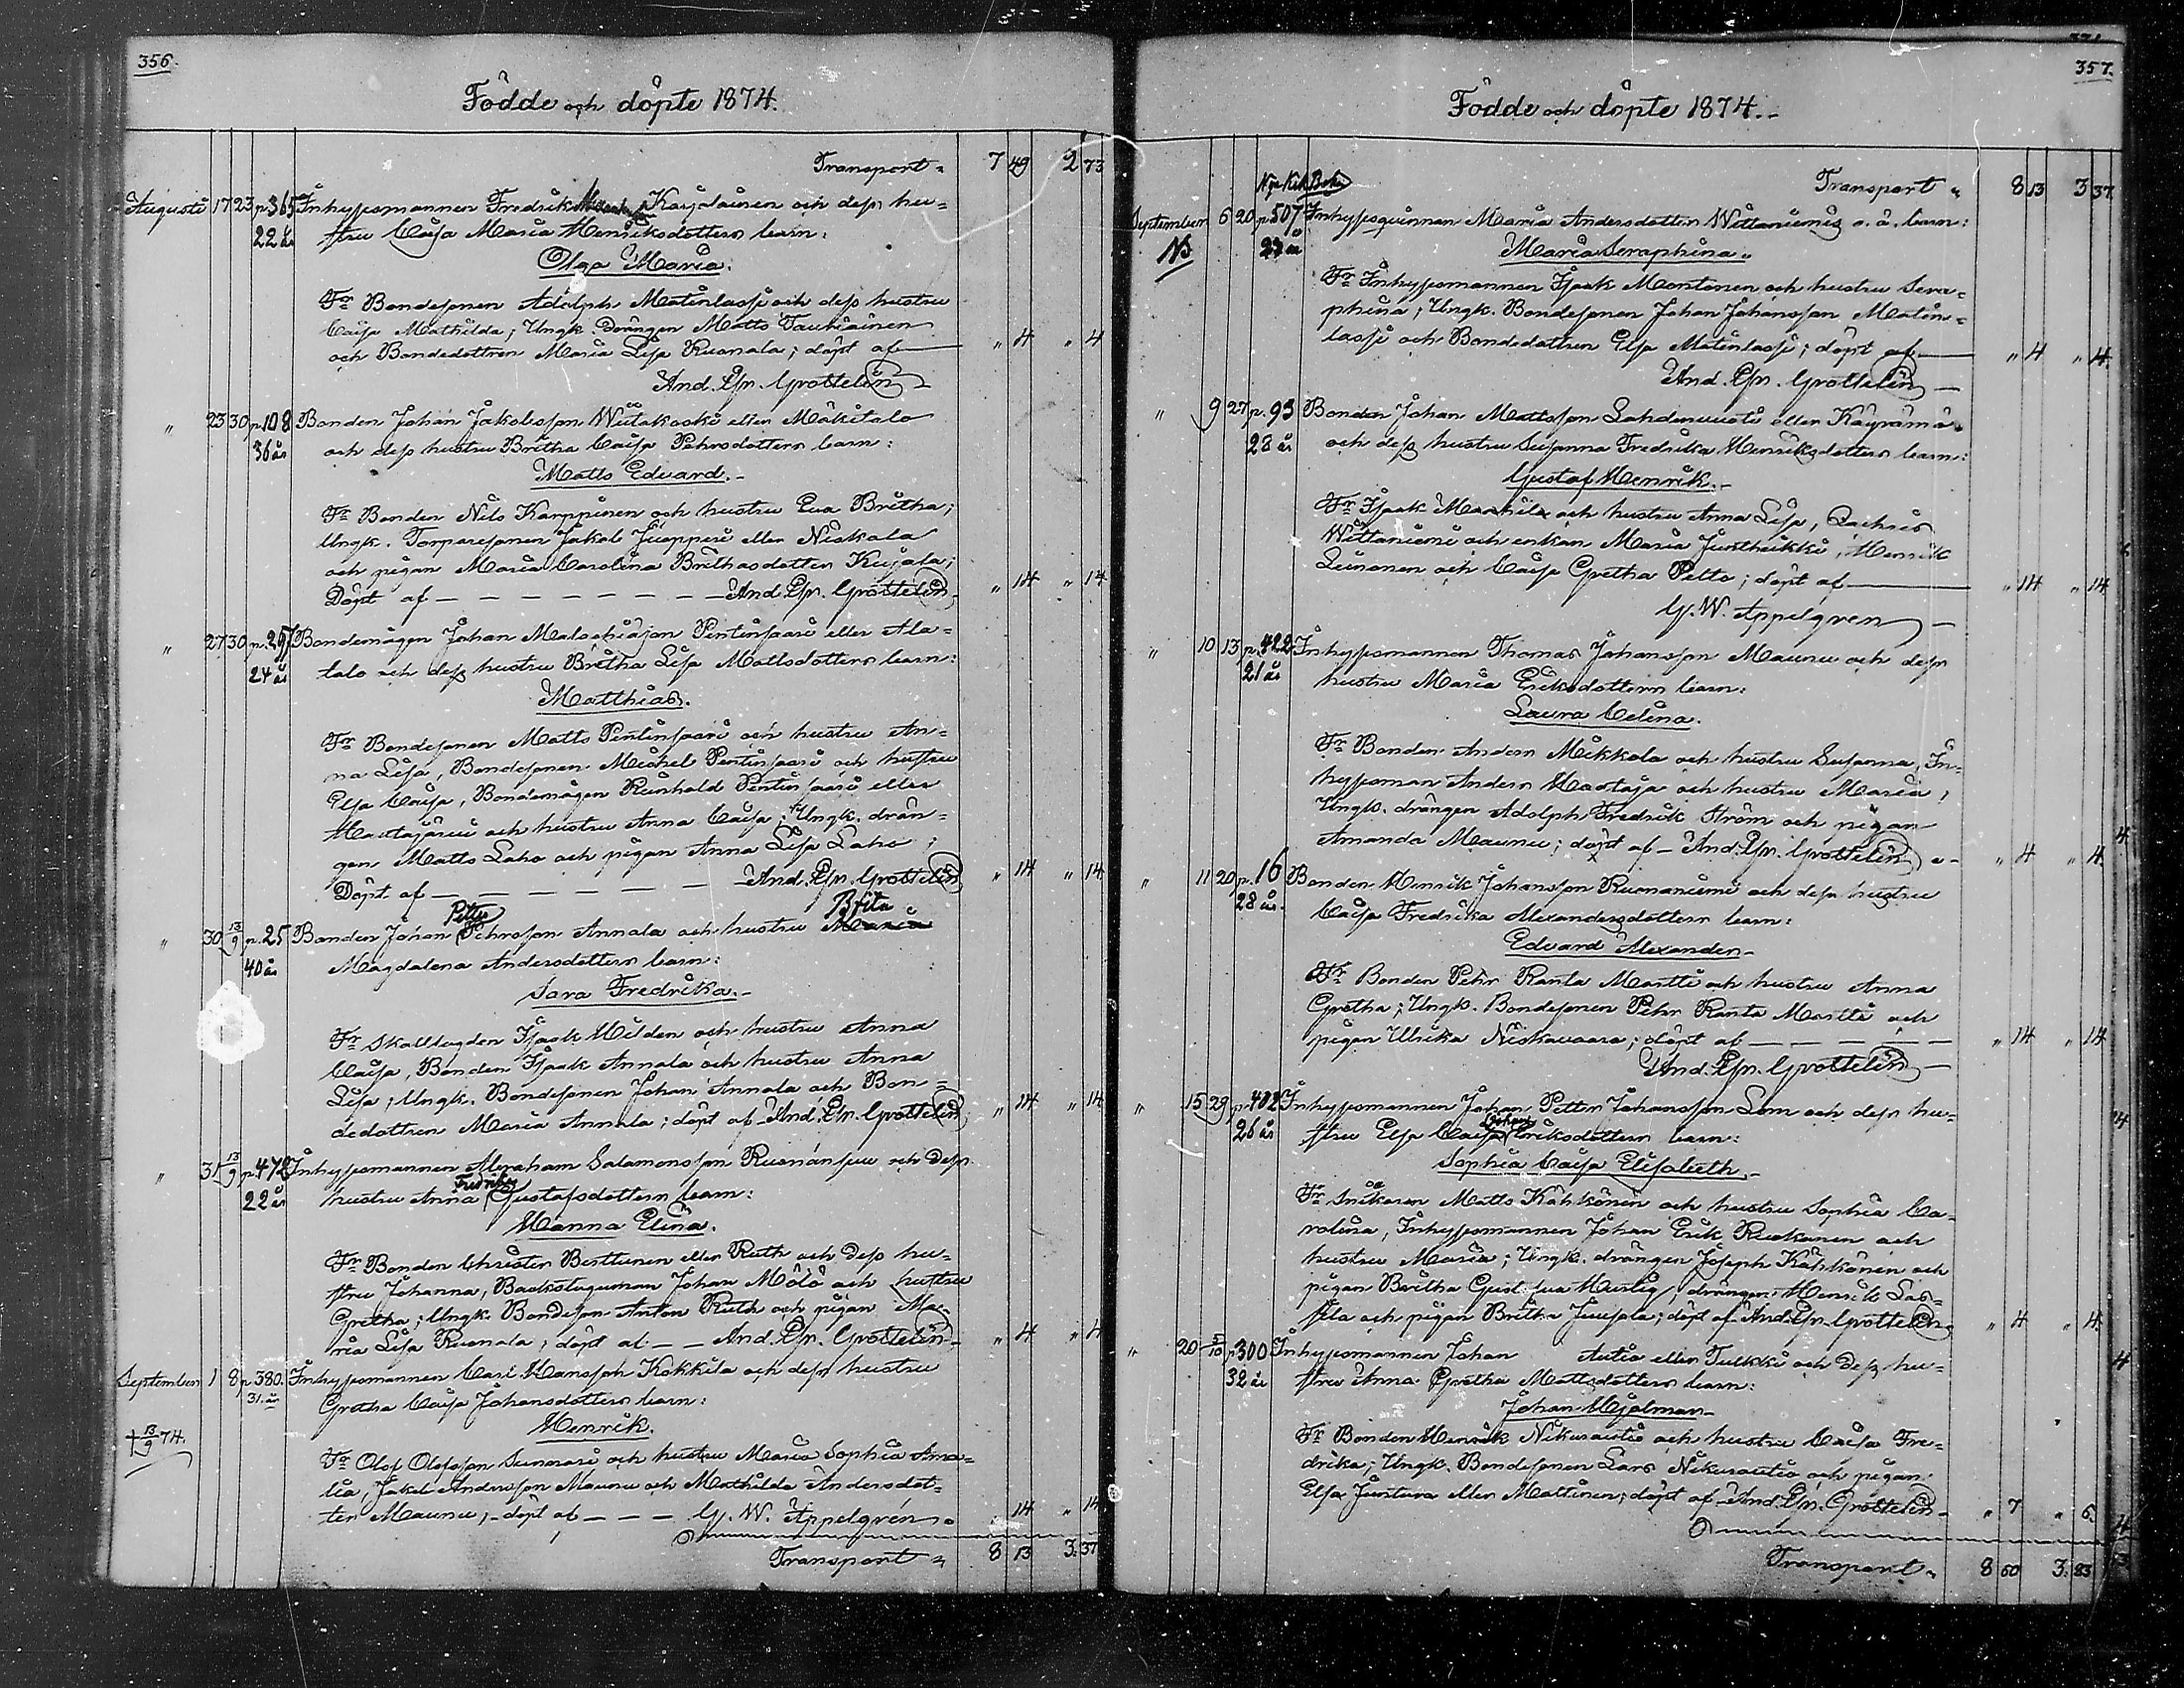 356.
Födde och döpte 1874.
Transport „ 7 49 2 73
Augusti 17 23 p. 365 Inhysesmannen Fredrik Karjalainen och dess hu-
22 år stru Caisa Maria Henriksdotters barn:
Olga Maria.
Fr Bondesonen Adolph Matinlassi och dess hustru
Caisa Mathilda; Ungk. Drängen Matts Taukiainen
och Bondedottren Maria Lisa Ruonala; döpt af „ 4 „ 4
And. Joh. Grottelin
„ 23 30 p. 108 Bonden Johan Jakobsson Wiitakoski eller Mäkitalo
36 år och dess hustru Britha Caisa Pehrsdotters barn:
Matts Edvard.
Fr Bonden Nils Karppinen och hustru Eva Britha;
Ungk. Torparesonen Jakob Juopperi eller Niskala
och pigan Maria Carolina Brithasdotter Kujala;
Döpt af And. Grottelin „ 14 „ 14
„ 27 30 p. 297 Bondemågen Johan Malachiasson Pentinsaari eller Ala-
24 år talo och dess hustru Britha Lisa Mattsdotters barn:
Matthias.
Fr Bondesonen Matts Pentinsaari och hustru An-
na Lisa, Bondesonen Michel Pentinsaari och hustru
Elsa Caisa, Bondemågen Reinhold Pentinsaari eller
Mautajärvi och hustru Anna Caisa; Ungk. drän-
gen Matts Laho och pigan Anna Lisa Laho;
Döpt af And. Grottelin „ 14 „ 14
Petter Brita
„ 30 13/9 p. 25 Bonden Johan Pehrsson Annala och hustru Maria
40 år Magdalena Andersdotters barn:
Sara Fredrika.
Fr Skallfogden Isaak Hilden och hustru Anna
Caisa, Bonden Isaak Annala och hustru Anna
Lisa; Ungk. Bondesonen Johan Annala och Bon-
dedottren Maria Annala; döpt af And. Grottelin „ 14 „ 14
„ 31 13/9 p. 472 Inhysesmannen Abraham Salamonsson Ruonansuu och dess
Fredrika
22 år hustru Anna Gustafsdotters barn:
Hanna Elina.
Fr Bonden Christer Berttunen eller Ruth och dess hu-
stru Johanna, Backstuguman Johan Mölö och hustru
Gretha; Ungk. Bondeson Anton Ruth och pigan Ma-
ria Lisa Ruonala; döpt af And. Grottelin „ 4 „ 4
September 1 8 p. 380. Inhysesmannen Carl Hansson Kokkila och dess hustru
31. år Gretha Caisa Johansdotters barn:
Henrik.
† 13/9 74.
Fr Olof Olofsson Sumari och hustru Maria Sophia Ama-
lia, Jakob Andersson Maunu och Mathilda Andersdot-
ter Maunu; döpt af G. W. Appelgrén „ 14 „ 14
Transport „ 8 13 3. 37
357.
Födde och döpte 1874.
Transport „ 8 13 3 37
Nya Kirk Boken
September 6 20 p. 507 Inhysesqvinnan Maria Andersdotter Wittaniemis o. ä. barn:
NB 29 år Maria Seraphina.
Fr Inhysesmannen Isaak Montonen och hustru Sera-
phina; Ungk. Bondesonen Johan Johansson Matin-
lassi och Bondedottren Elsa Matinlassi; döpt af „ 4 „ 4.
And. Grottelin
„ 9 27 p. 93 Bonden Johan Mattsson Lahdenvuoti eller Käyrämä
28 år och dess hustru Susanna Fredrika Henriksdotters barn:
Gustaf Henrik.
Fr Isaak och hustru Anna Lisa, Zachris
Wittaniemi och enkan Maria Juntheikki, Henrik
Leinonen och Caisa Gretha Pelto; döpt af „ 14 „ 14
G. W. Appelgren
„ 10 13 p. 422 Inhysesmannen Thomas Johansson Maunu och dess
21 år hustru Maria Eriksdotters barn:
Laura Celina.
Fr Bonden Anders Mikkola och hustru Susanna, In-
hysesman Anders Haataja och hustru Maria;
Ungk. drängen Adolph Fredrik Ström och pigan
Amanda Maunu; döpt af And. Grottelin „ 4 „ 4.
„ 11 20 p. 16 Bonden Henrik Johansson Ruonaniemi och dess hustru
28 år. Caisa Fredrika Alexandersdotters barn:
Edvard Alexander
Fr Bonden Pehr Ranta Martti och hustru Anna
Gretha; Ungk. Bondesonen Pehr Ranta Martti och
pigan Ulrika Niskavaara; döpt af „ 14 „ 14
And. Grottelin
„ 15 29 p. 402 Inhysesmannen Johan Petter Johansson Lom och dess hu-
Johan
26 år stru Elsa Caisa Eriksdotters barn:
Sophia Caisa Elisabeth.
Fr Snickaren Matts Kähkönen och hustru Sophia Ca-
rolina, Inhysesmannen Johan Erik Ruokanen och
hustru Maria; Ungk. drängen Joseph Kähkönen och
pigan Britha Gust:sua Murtig, drängen Henrik Las-
sila och pigan Britha Juusola; döpt af And. Grottelin „ 4 „ 4.
„ 20 5/10 p. 300 Inhysesmannen Johan Autio eller Tulkki och dess hu-
32 år stru Anna Gretha Mattsdotters barn:
Johan Hjalmar
Fr Bonden Henrik Nikurautio och hustru Caisa Fre-
drika; Ungk. Bondesonen Lars Nikurautio och pigan
Elsa Juntura eller Mattinen; döpt af And. Grottelin „ 7 „ 6.
Transport „ 8 60 3. 83